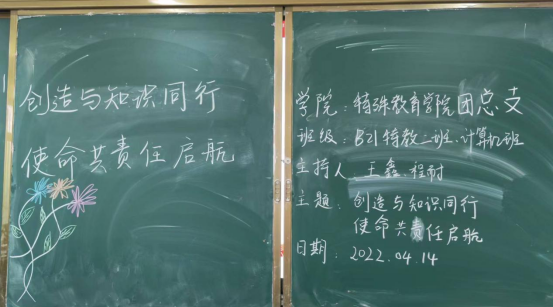 创造与知识同行
使命共责任启航
学院：特殊教育学院团总支
班级：B21特教二班、计算机班
主持人 王鑫、程耐
主题：创造与知识同行
使命共责任启航
日期：2022.04.14